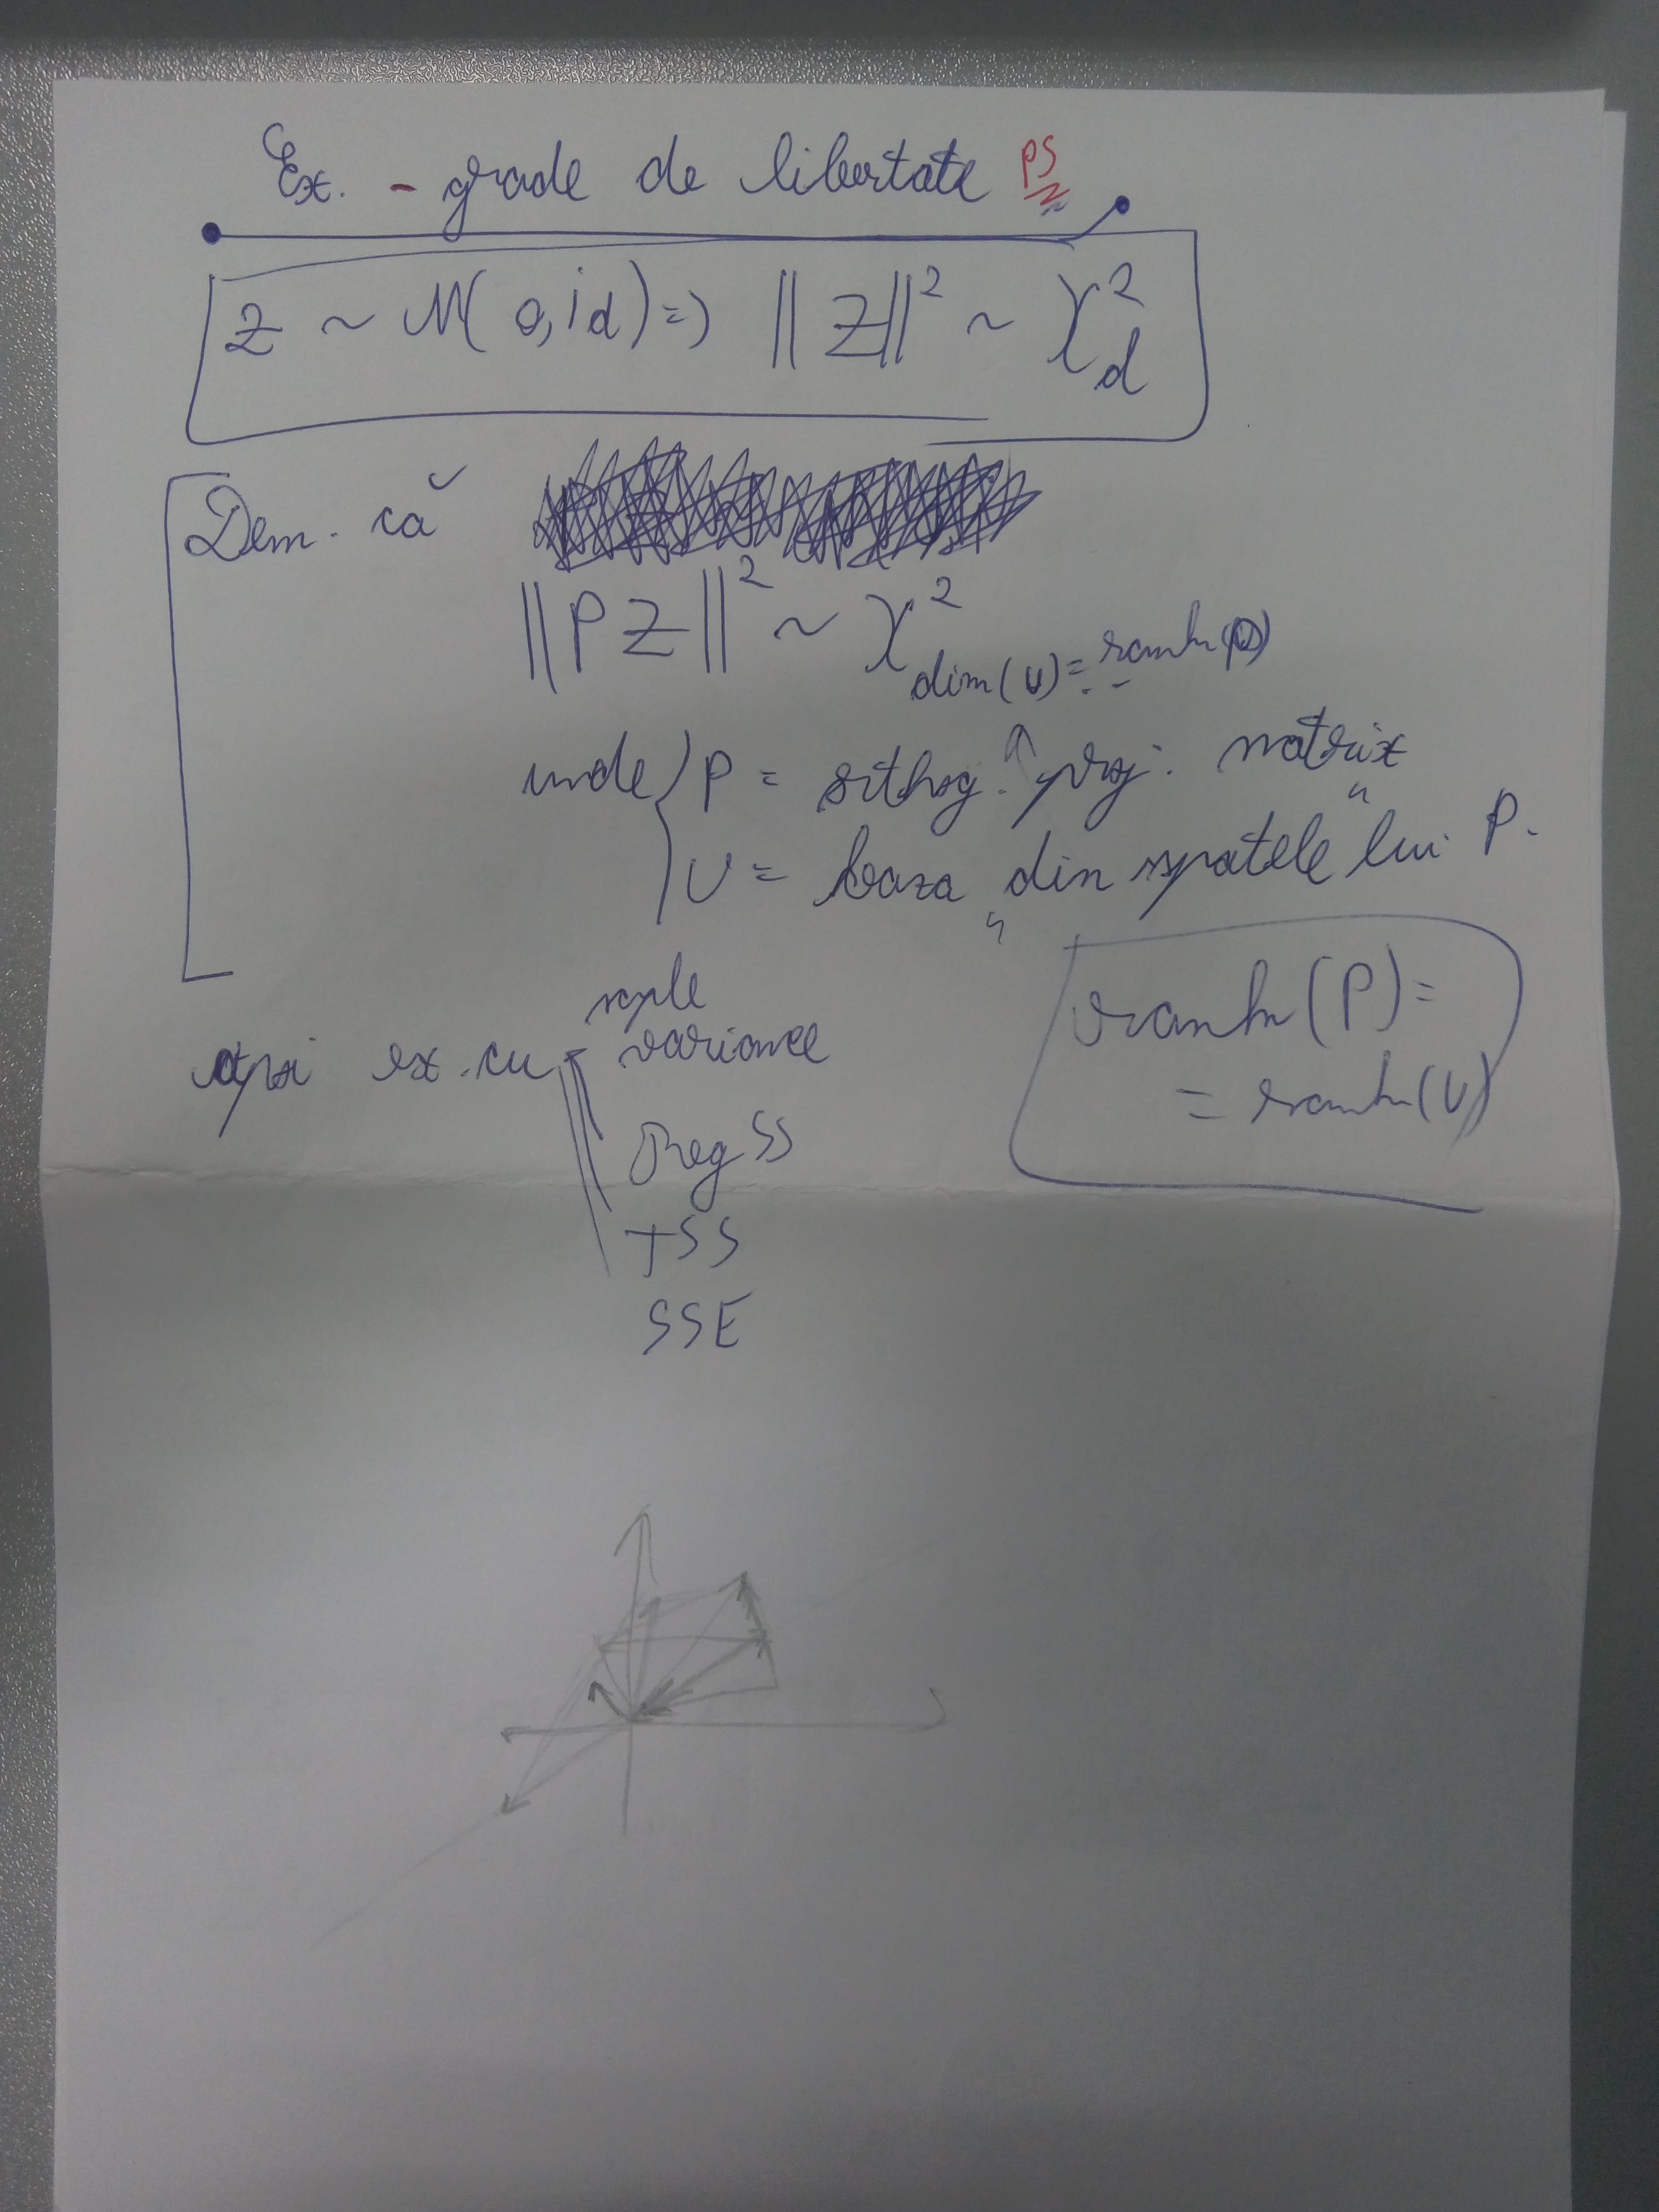 Ex. - grade de libertate PS
Z ~ N(0, id) => ||Z||² ~ χ²_d
Dem. că
||PZ||² ~ χ²_dim(U) = rank(P)
unde { P = orthog. proj. matrix
U = baza „din spatele" lui P.
rank(P) =
= rank(U)
sample
apoi ex. cu variance
Reg SS
TSS
SSE